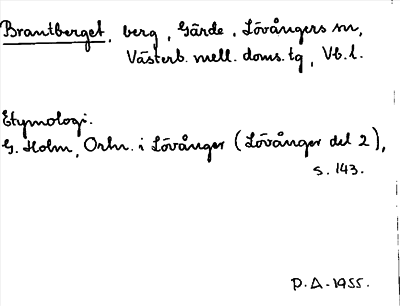 Brantberget, berg, Gärde, Lövångers sn,
Västerb. mell. doms. tg, Vb. l.
Etymologi.
G. Holm, Ortn. i Lövånger (Lövånger del 2),
s. 143.
P.A. 1955.